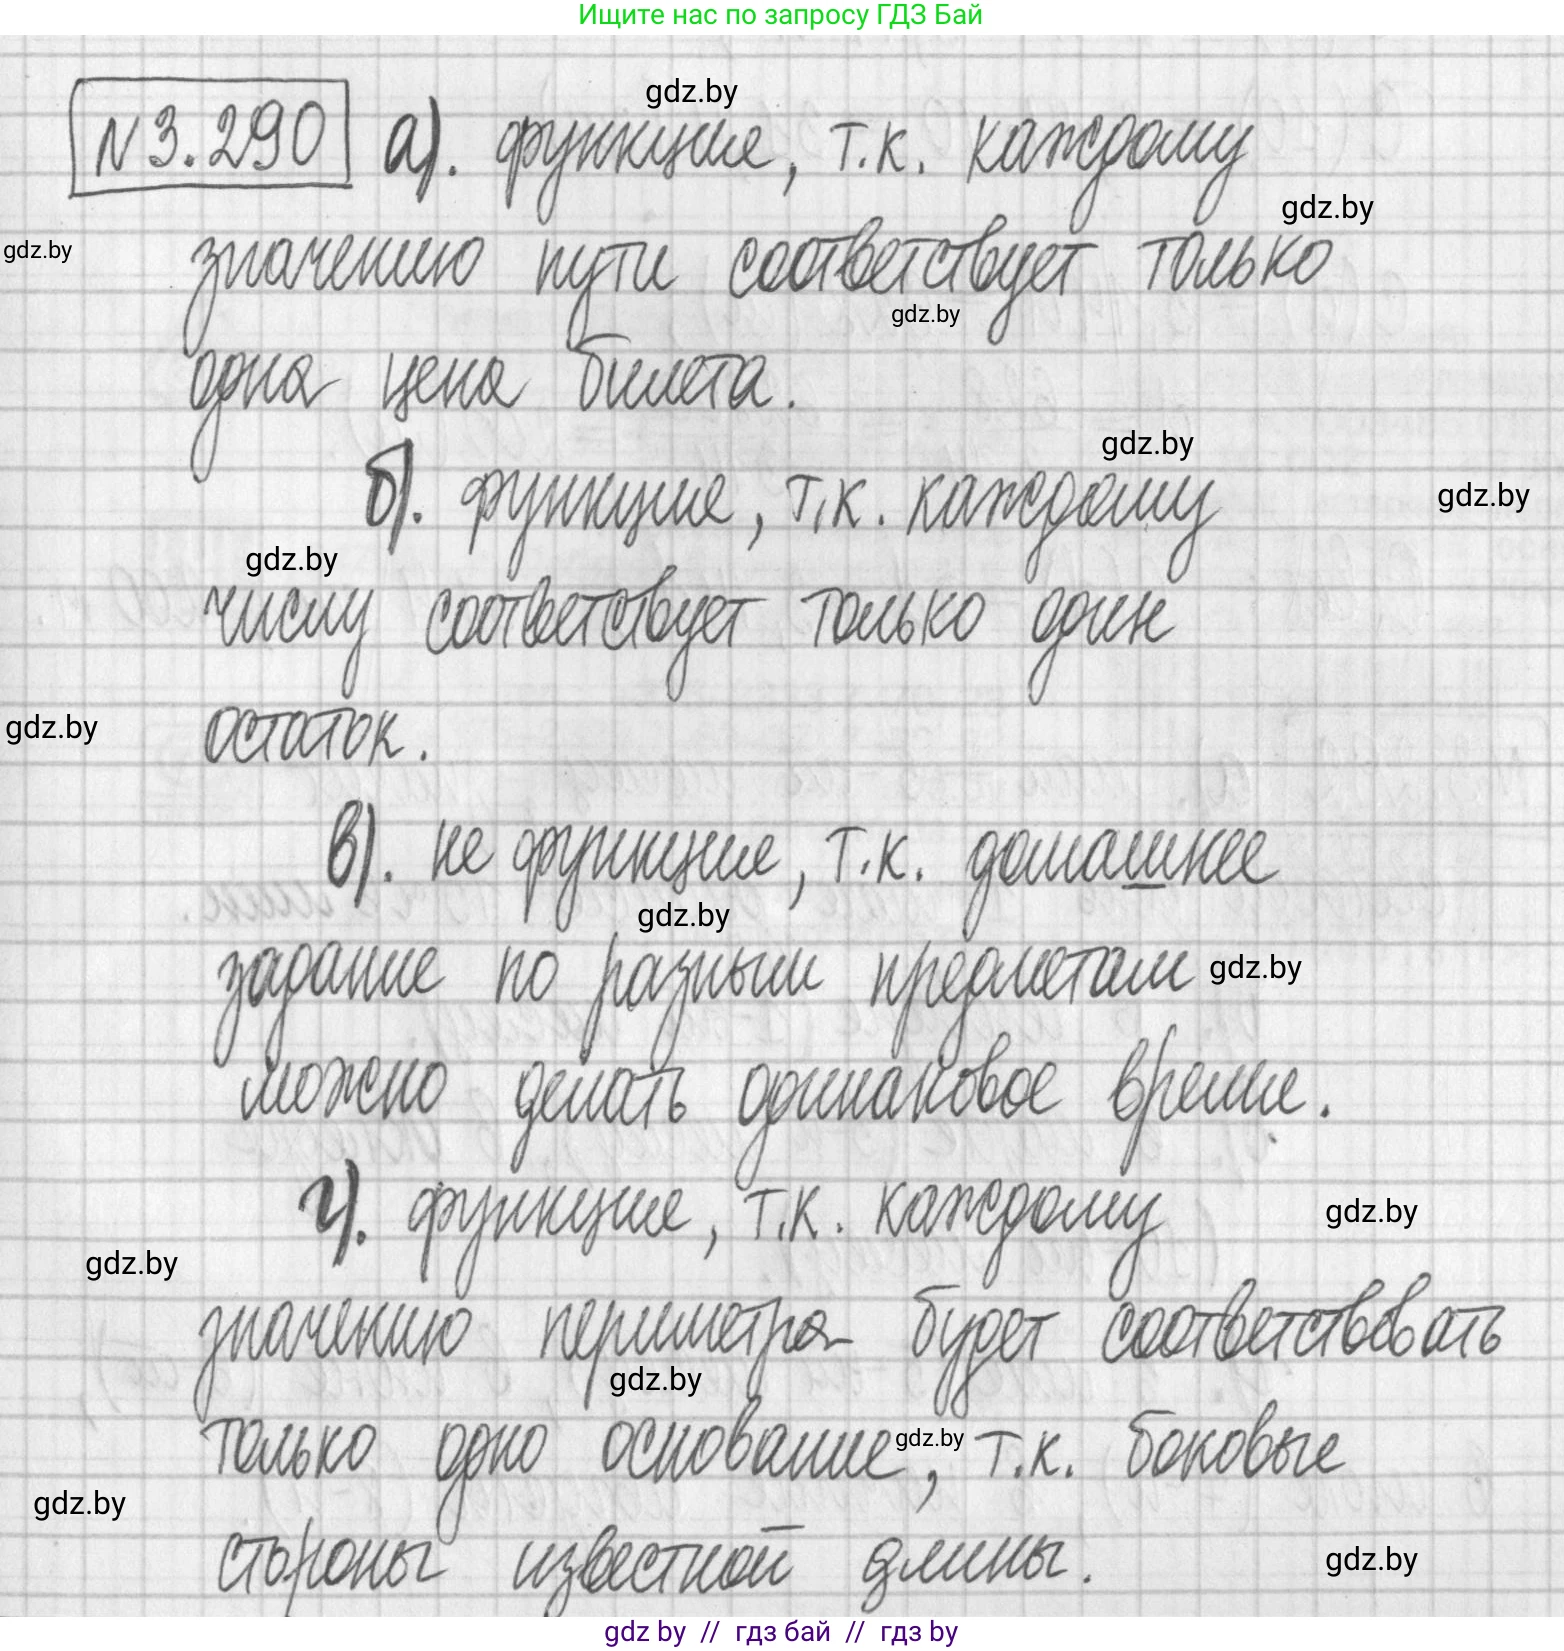 Ищите нас по запросу ГДЗ Бай
gdz.by
№3.290 а). функция, т.к. каждому
gdz.by
gdz.by
значению пути соответствует только
gdz.by
одна цена билета.
gdz.by
б). функция, т.к. каждому
gdz.by
gdz.by
числу соответствует только один
остаток.
gdz.by
в). не функция, т.к. домашнее
gdz.by
задание по разным предметам
gdz.by
можно делать одинаковое время.
г). функция, т.к. каждому
gdz.by
gdz.by
значению периметра будет соответствовать
gdz.by
только одно основание, т.к. боковые
gdz.by
gdz.by
стороны известной длины.
gdz.by
gdz by // гдз бай // gdz by